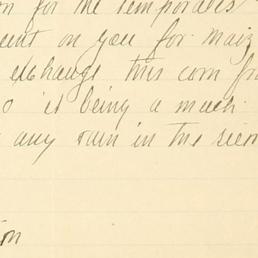 for the temporales
sent on you for Maiz
exchange this corn for
is being a much
any rain in the sier